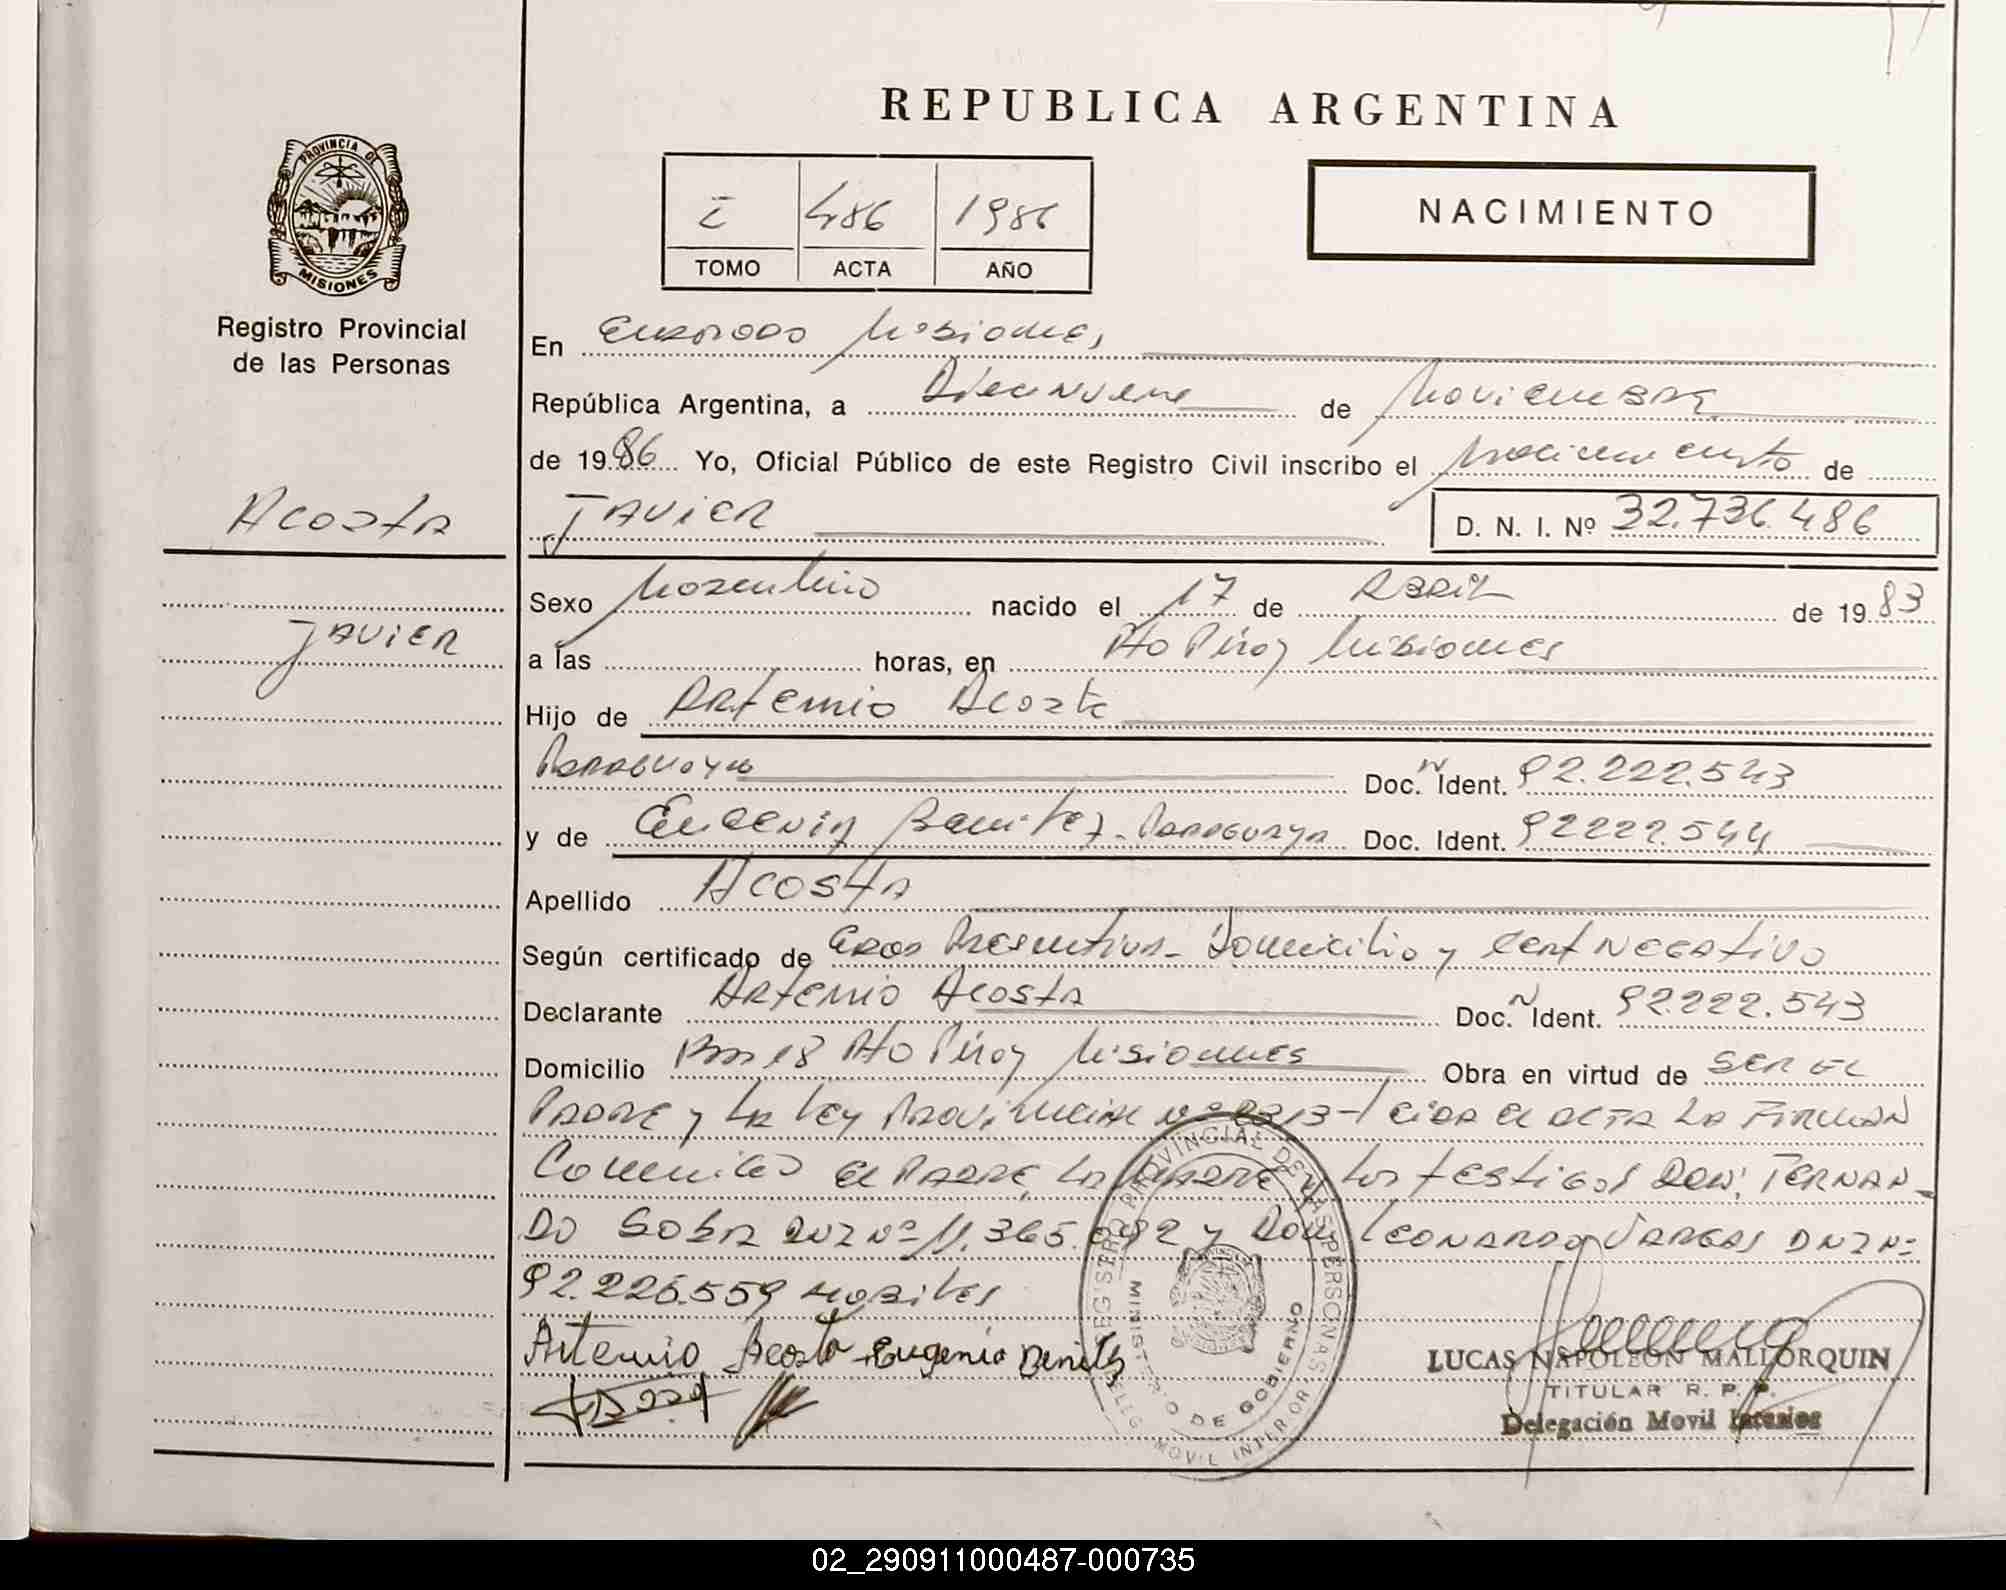 REPUBLICA ARGENTINA
PROVINCIA DE
MISIONES
Registro Provincial
de las Personas
I 486 1986
TOMO ACTA AÑO
NACIMIENTO
En Misiones,
República Argentina, a Diecinueve de Noviembre
de 1986 Yo, Oficial Público de este Registro Civil inscribo el nacimiento de
Acosta
JAVIER D. N. I. Nº 32.736.486
Sexo Masculino nacido el 17 de ABRIL de 1983
JAVIER
a las horas, en Pto Piray Misiones
Hijo de Artemio Acosta
Paraguayo Doc. N Ident. 92.222.543
y de Eugenia Benitez - Paraguaya Doc. Ident. 92222.544
Apellido ACOSTA
Según certificado de Edad Presuntiva - Domicilio y Cert Negativo
Declarante Artemio Acosta Doc. N Ident. 92.222.543
Domicilio Km 18 Pto Piray Misiones Obra en virtud de SER EL
PADRE y LA LEY PROVINCIAL Nº 2313 - Leida el ACTA LA FIRMAN
Conmigo el PADRE, LA MADRE y los testigos Don, FERNAN-
DO SOSA DNI Nº 11.365.092 y Don Leonardo VARGAS DNI Nº
92.226.559 habiles
Artemio Acosta Eugenia Benitez
REGISTRO PROVINCIAL DE LAS PERSONAS
MINISTERIO DE GOBIERNO
DELEG. MOVIL INTERIOR
LUCAS NAPOLEON MALLORQUIN
TITULAR R. P. P.
Delegación Movil Interior
02_290911000487-000735